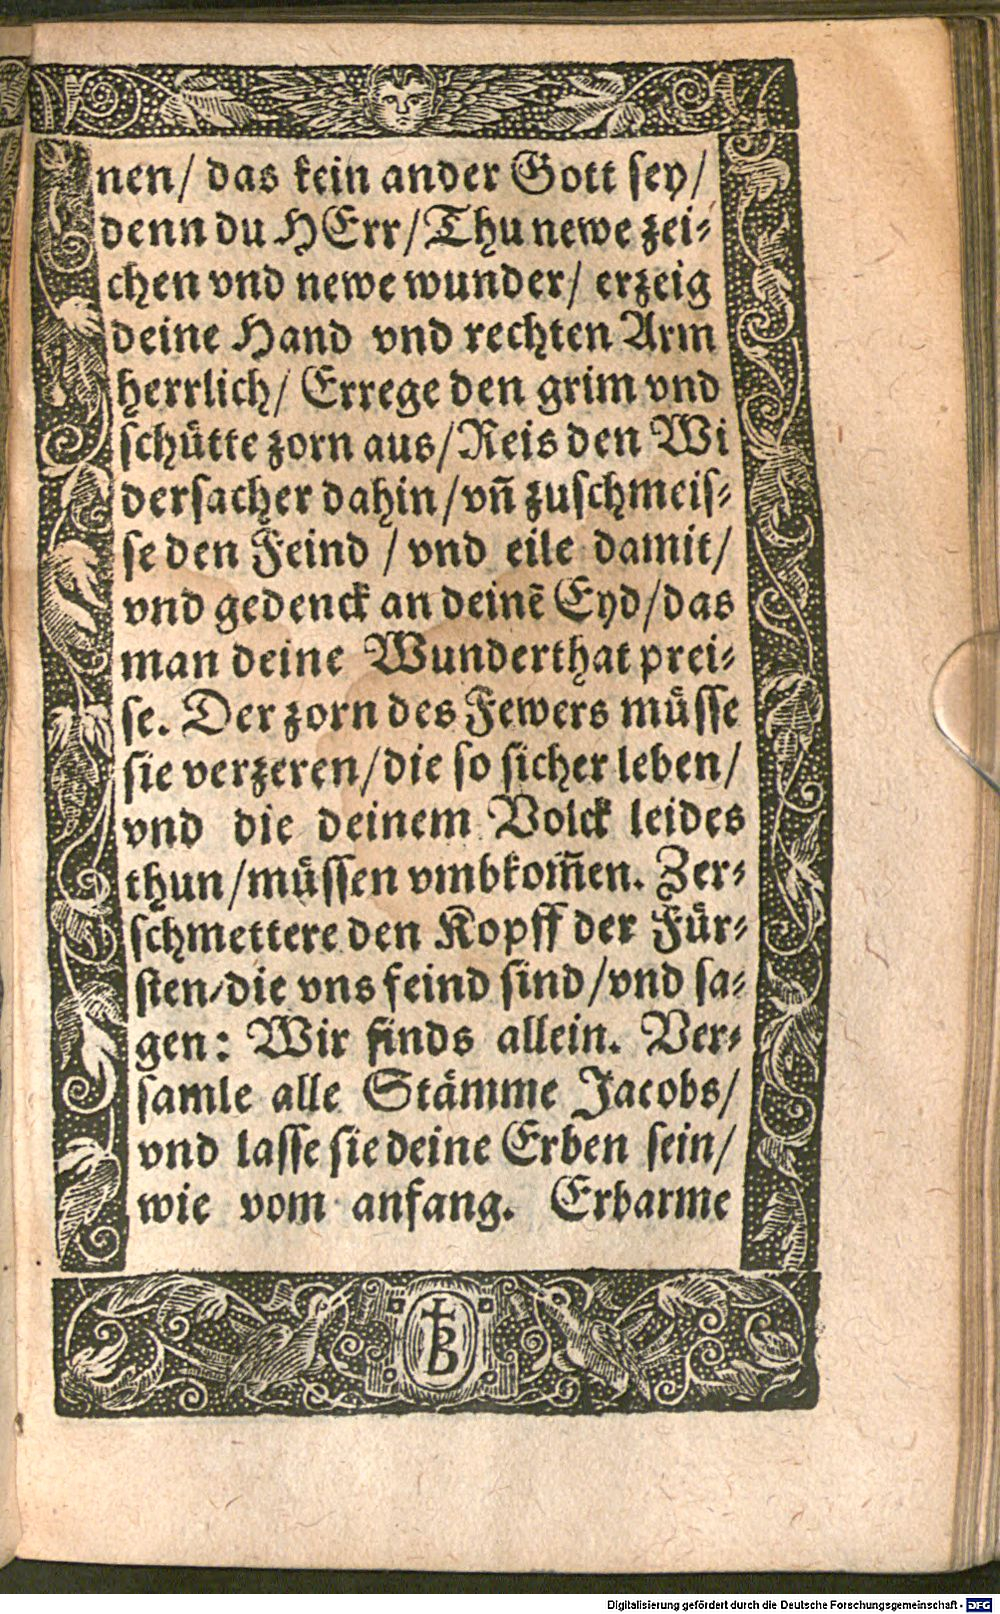 nen/ das kein ander Gott sey/
denn du HErr/Thu newe zei-
chen vnd newe wunder/ erzeig
deine Hand vnd rechten Arm
herrlich/ Errege den grim vnd
schütte zorn aus/Reis den Wi
dersacher dahin/vn̄ zuschmeis-
se den Feind / vnd eile damit/
vnd gedenck an deinē Eyd/das
man deine Wunderthat prei-
se. Der zorn des Fewers müsse
sie verzeren/die so sicher leben/
vnd die deinem Volck leides
thun/müssen vmbkom̄en. Zer-
schmettere den Kopff der Für-
sten/die vns feind sind/vnd sa-
gen: Wir sinds allein. Ver-
samle alle Stämme Jacobs/
vnd lasse sie deine Erben sein/
wie vom anfang. Erbarme
TB
Digitalisierung gefördert durch die Deutsche Forschungsgemeinschaft - DFG